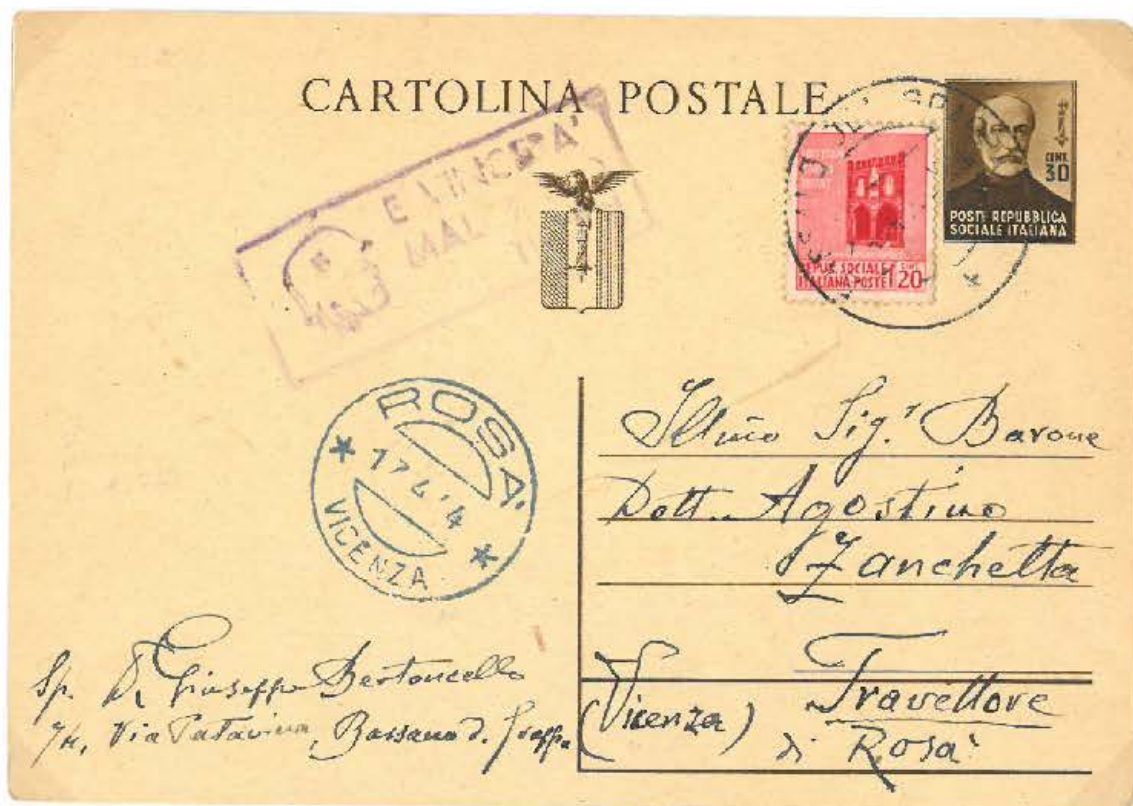 CARTOLINA POSTALE
CENT.
30
POSTE REPUBBLICA
SOCIALE ITALIANA
REP. SOCIALE CENT.
ITALIANA-POSTE 20
E VINCERÀ
ROSÀ
17 4 '4
VICENZA
Illmo Sig.r Barone
Dott. Agostino
Zanchetta
Travettore
(Vicenza) di Rosà
Sp. Dr Giuseppe Bertoncello
Via Patavina, Bassano d. Grappa